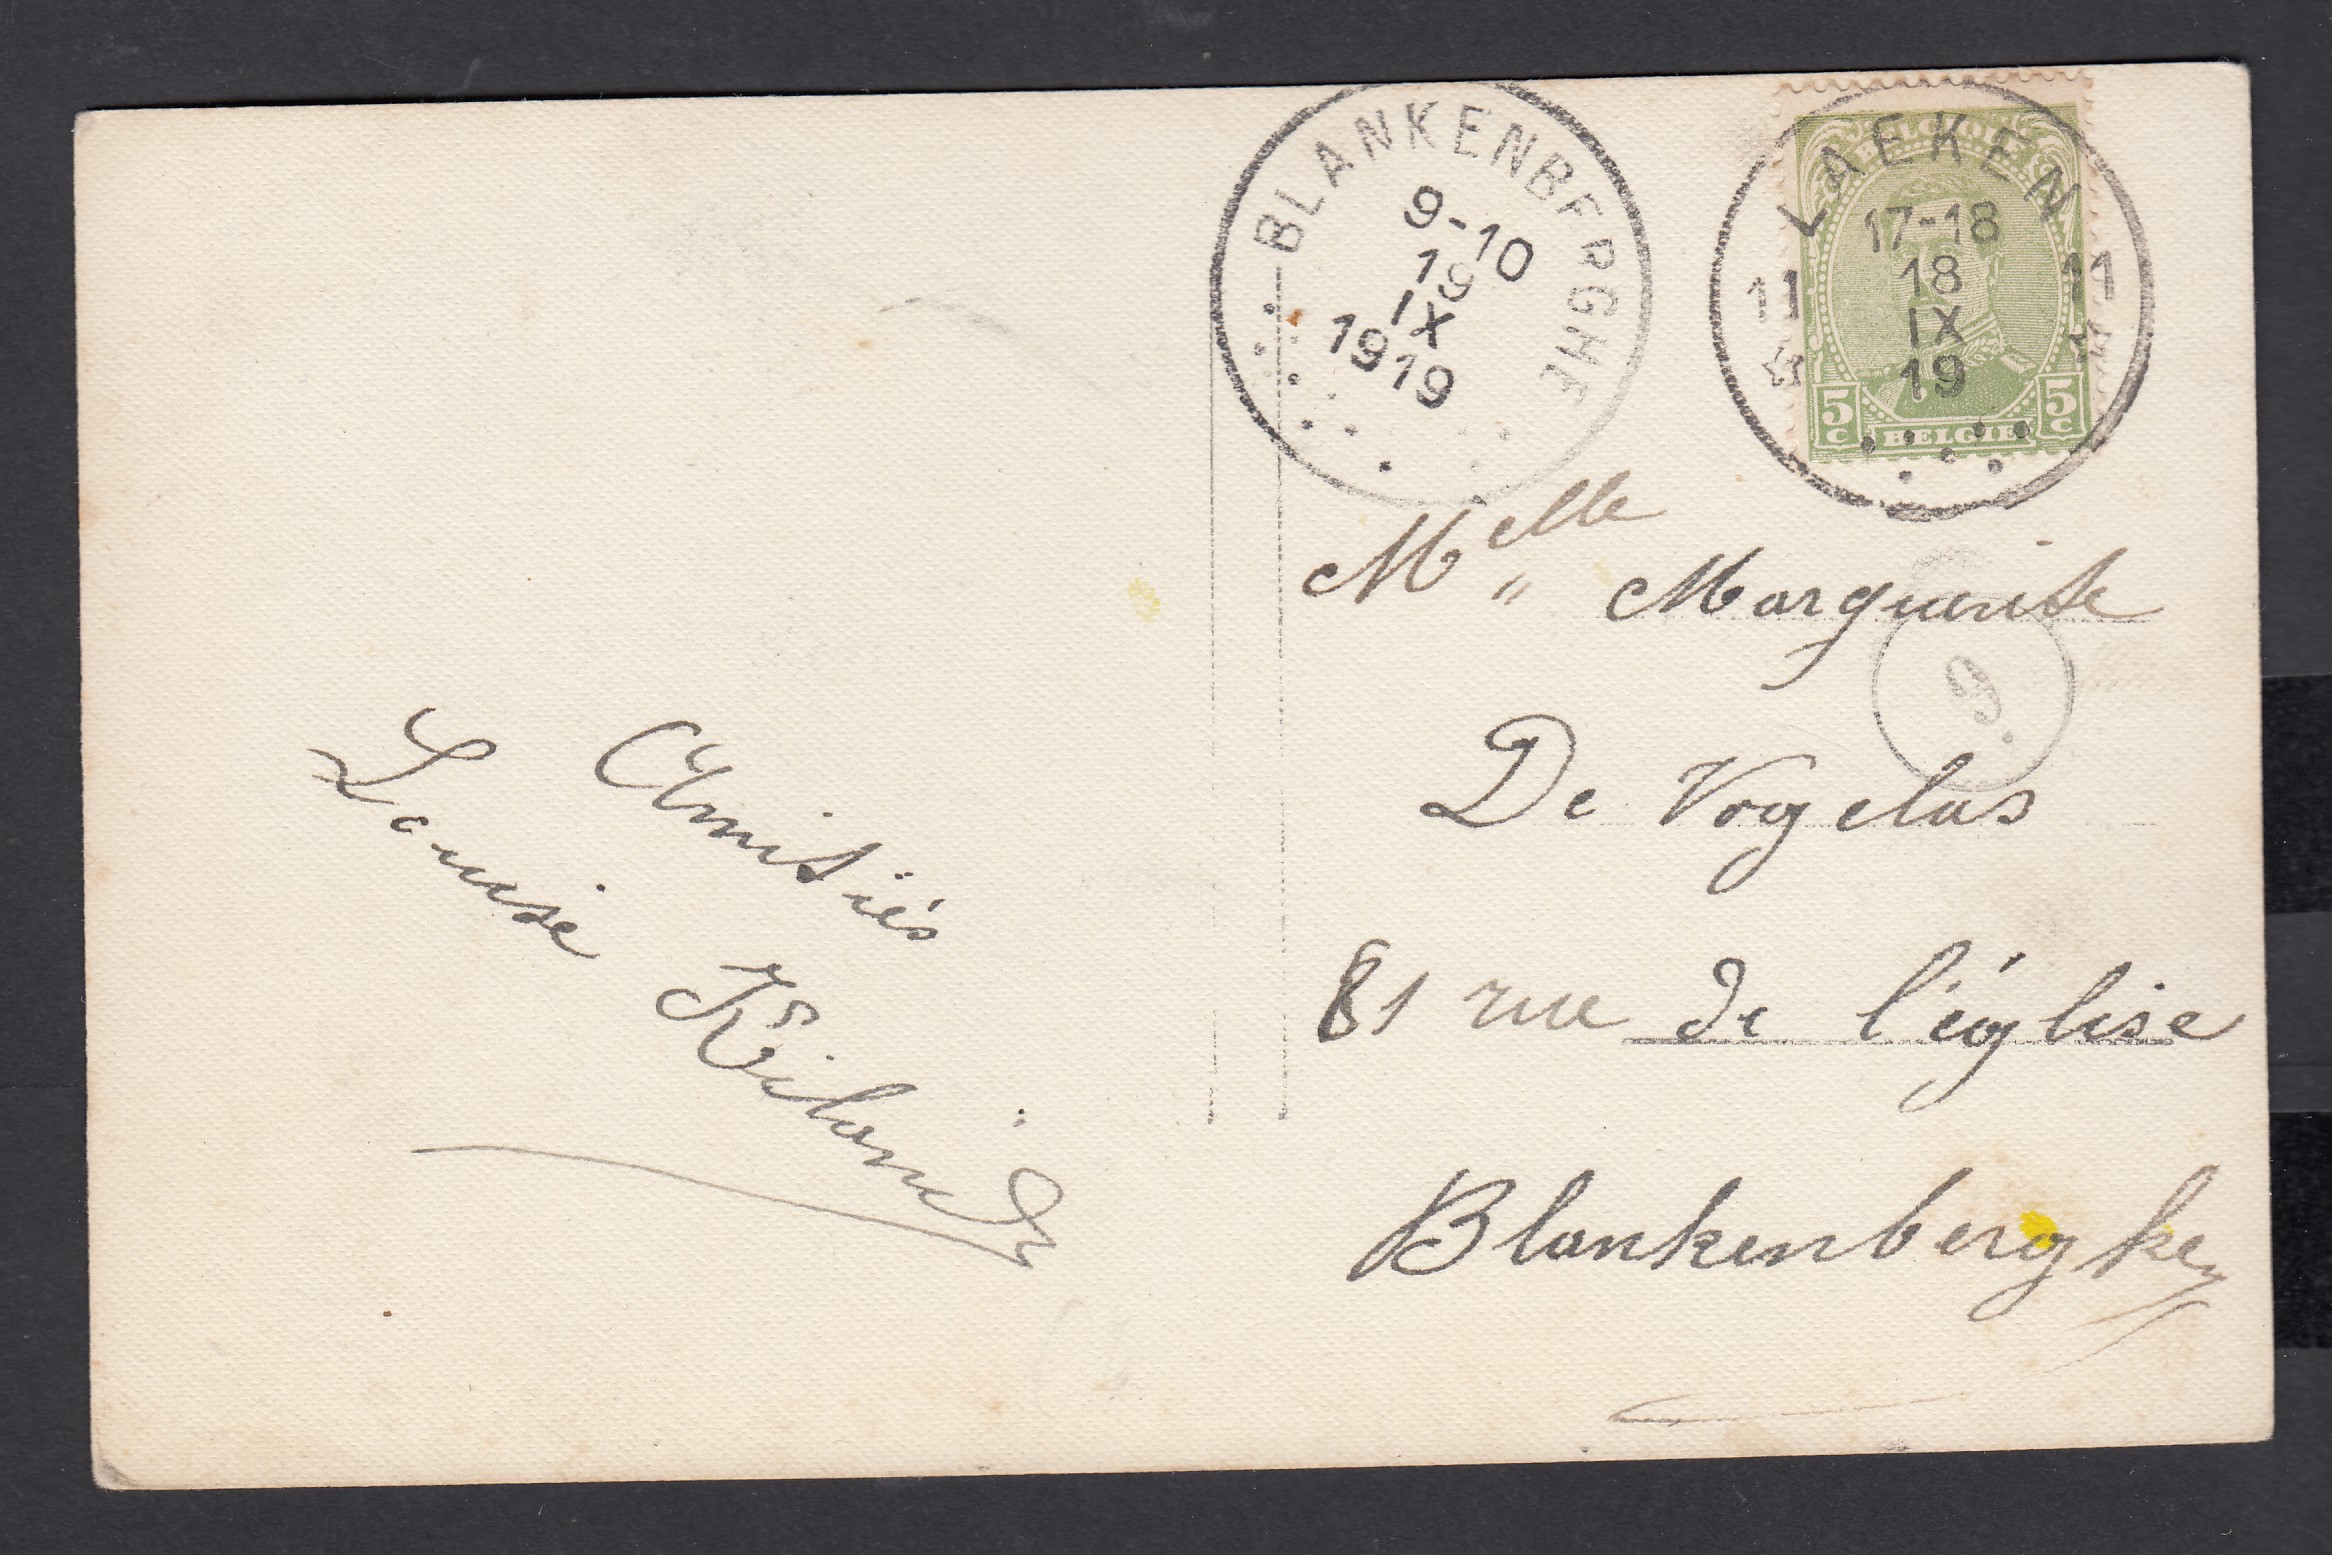 BLANKENBERGHE
9-10
19
IX
1919
LAEKEN
11 11
17-18
18
IX
19
BELGIQUE
5c 5c
BELGIË
Melle Marguerite
De Vogelas
81 rue de l'église
Blankenberghe
Amitiés
Louise
9